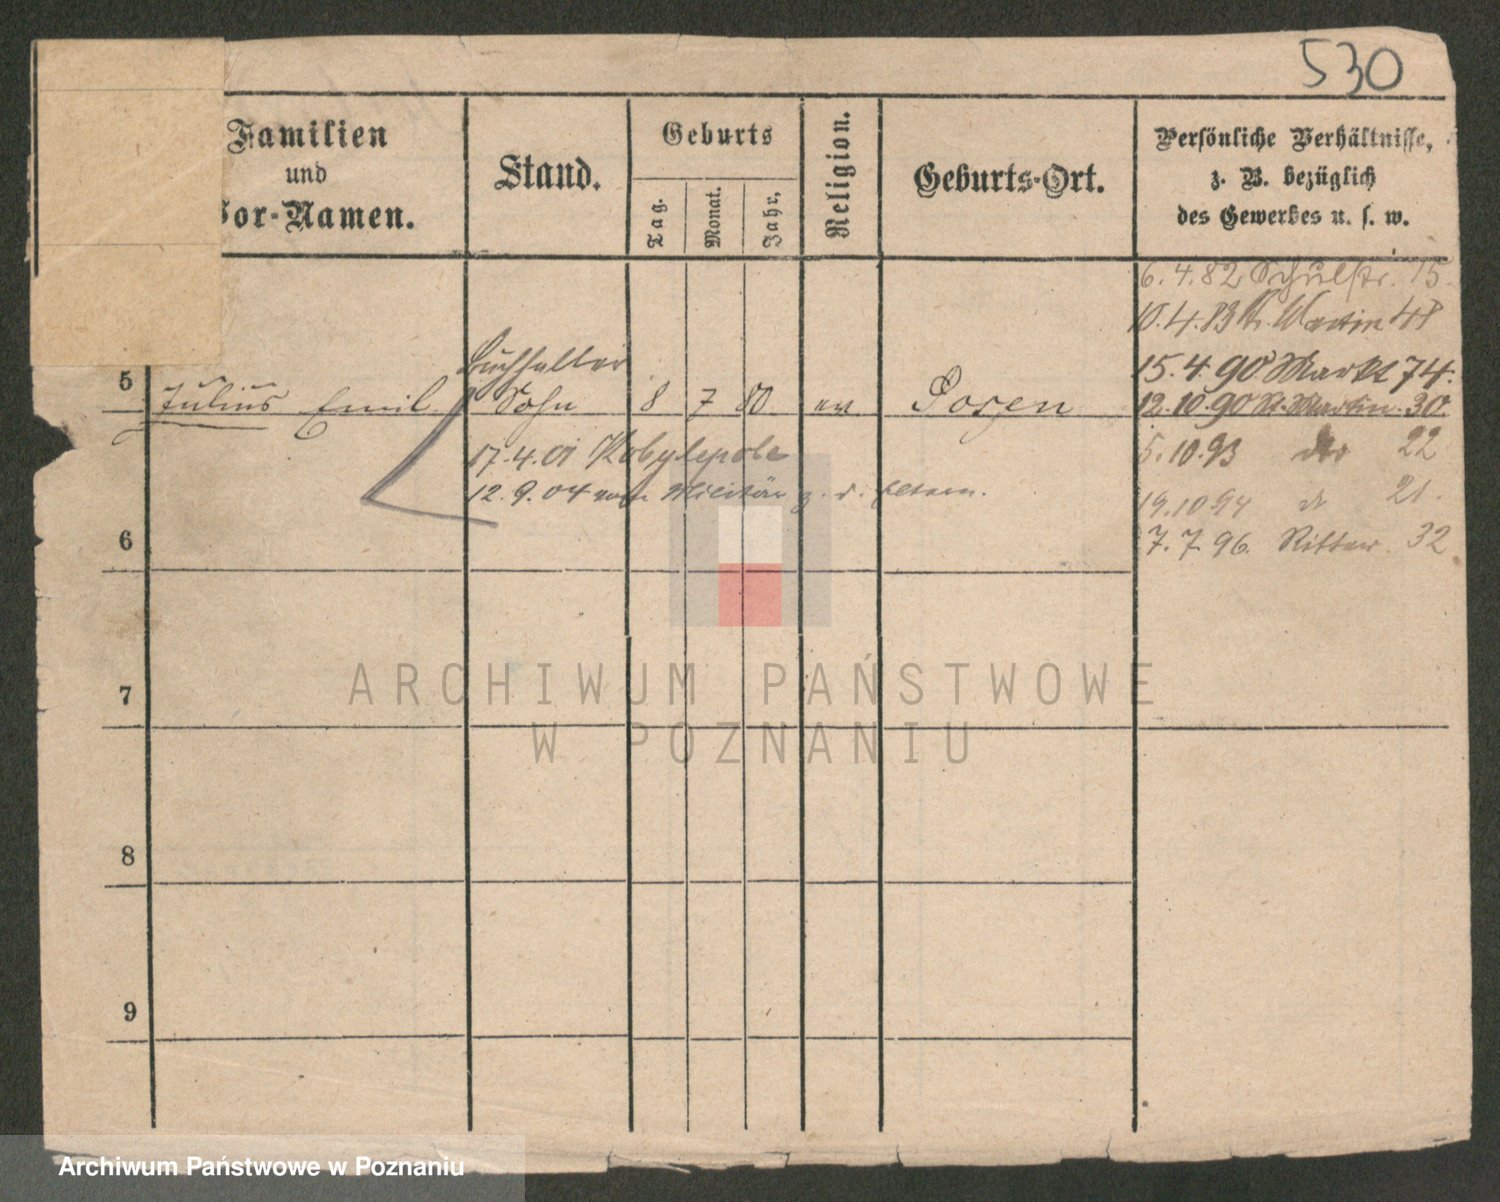 530
Familien
und
Vor-Namen.
Stand.
Geburts
Tag.
Monat.
Jahr.
Religion.
Geburts-Ort.
Persönliche Verhältnisse,
z. B. bezüglich
des Gewerbes u. s. w.
6.4.82 Schulstr. 15.
10.4.83 St. Martin 48
15.4.90 Markt 74.
Buchhalter
5 Julius Emil Sohn 8 7 80 ev Posen 12.10.90 St. Martin 30.
17.4.01 Kobylepole
5.10.93 22
12.9.04 vom Militär z. d. Eltern.
19.10.94 21.
6
7.7.96. Ritter. 32
7
8
9
ARCHIWUM PAŃSTWOWE
W POZNANIU
Archiwum Państwowe w Poznaniu